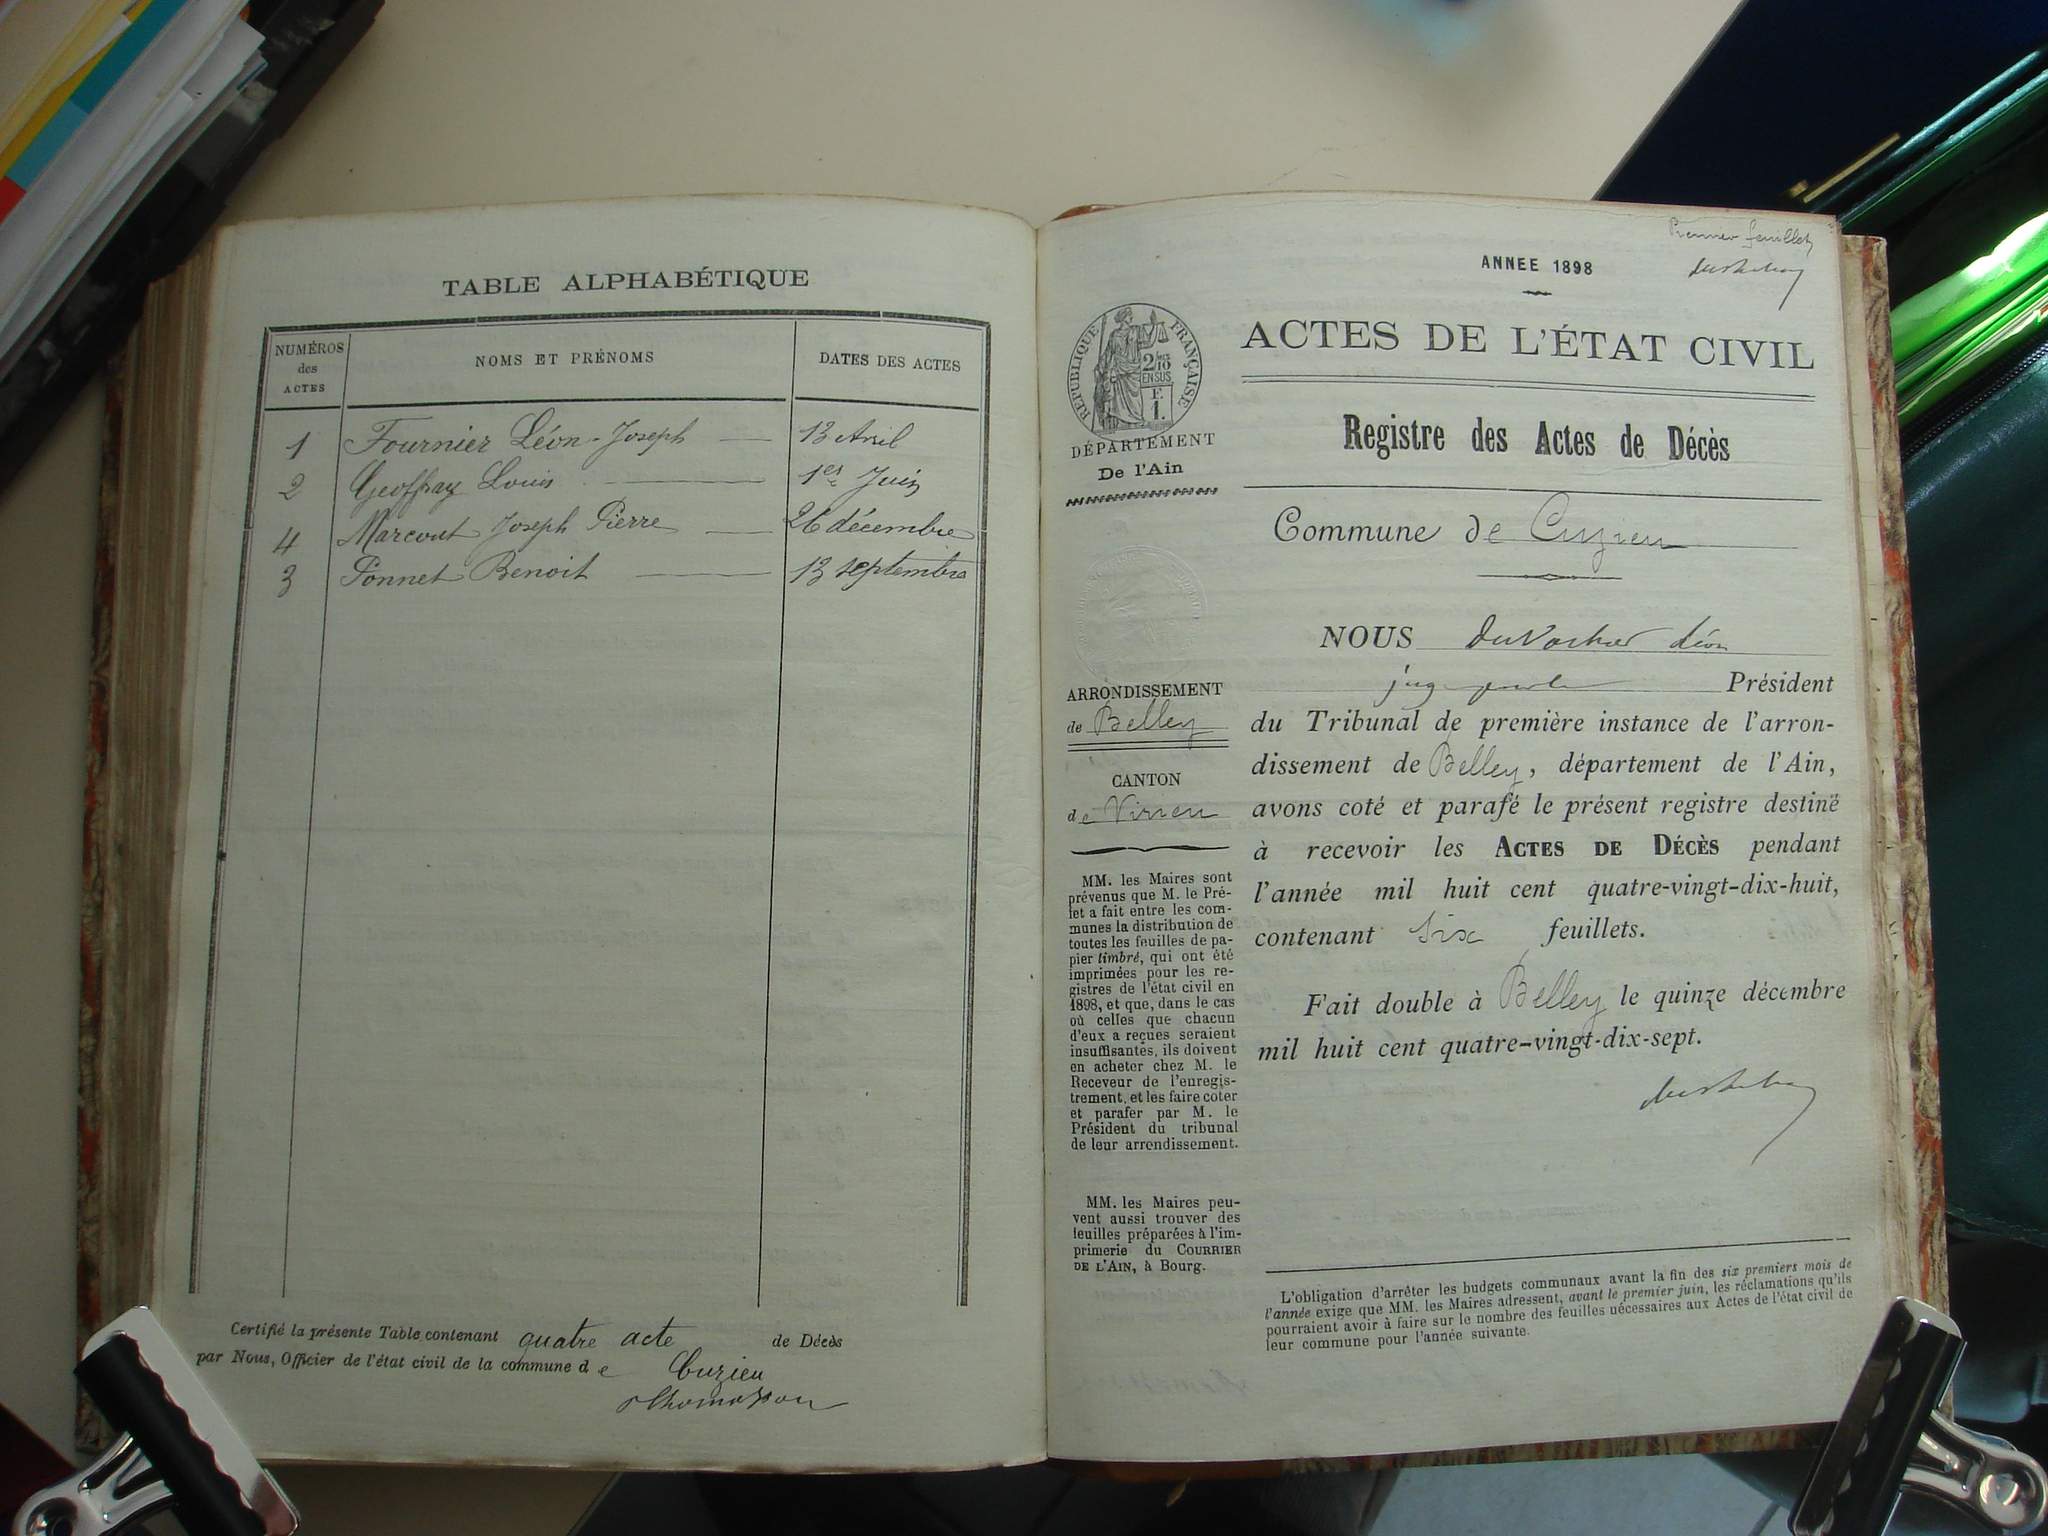 TABLE ALPHABÉTIQUE
NUMÉROS des ACTES
NOMS ET PRÉNOMS
DATES DES ACTES
1 Fournier Léon-Joseph — 13 Avril
2 Geoffray Louis — 1er Juin
4 Marcout Joseph Pierre — 26 décembre
3 Ponnet Benoit — 13 septembre
Certifié la présente Table contenant quatre acte de Décès
par Nous, Officier de l'état civil de la commune de Cuzieu
Thomasson
Premier feuillet
ANNEE 1898
RÉPUBLIQUE FRANÇAISE
2/10
EN SUS
F.
1.
DÉPARTEMENT
De l'Ain
ARRONDISSEMENT
de Belley
CANTON
de Virieu
MM. les Maires sont
prévenus que M. le Pré-
fet a fait entre les com-
munes la distribution de
toutes les feuilles de pa-
pier timbré, qui ont été
imprimées pour les re-
gistres de l'état civil en
1898, et que, dans le cas
où celles que chacun
d'eux a reçues seraient
insuffisantes, ils doivent
en acheter chez M. le
Receveur de l'enregis-
trement, et les faire coter
et parafer par M. le
Président du tribunal
de leur arrondissement.
MM. les Maires peu-
vent aussi trouver des
feuilles préparées à l'im-
primerie du COURRIER
DE L'AIN, à Bourg.
ACTES DE L'ÉTAT CIVIL
Registre des Actes de Décès
Commune de Cuzieu
NOUS Léon
Président
du Tribunal de première instance de l'arron-
dissement de Belley, département de l'Ain,
avons coté et parafé le présent registre destiné
à recevoir les ACTES DE DÉCÈS pendant
l'année mil huit cent quatre-vingt-dix-huit,
contenant six feuillets.
Fait double à Belley le quinze décembre
mil huit cent quatre-vingt-dix-sept.
L'obligation d'arrêter les budgets communaux avant la fin des six premiers mois de
l'année exige que MM. les Maires adressent, avant le premier juin, les réclamations qu'ils
pourraient avoir à faire sur le nombre des feuilles nécessaires aux Actes de l'état civil de
leur commune pour l'année suivante.